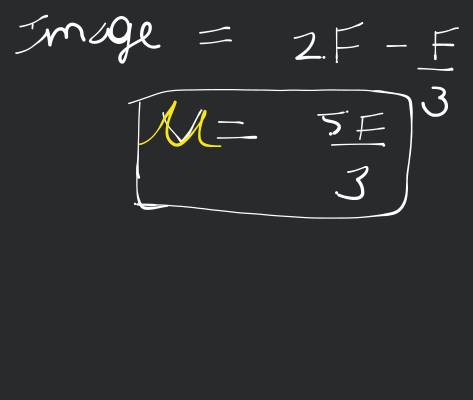 Image = 2F - F/3
u = 5F/3